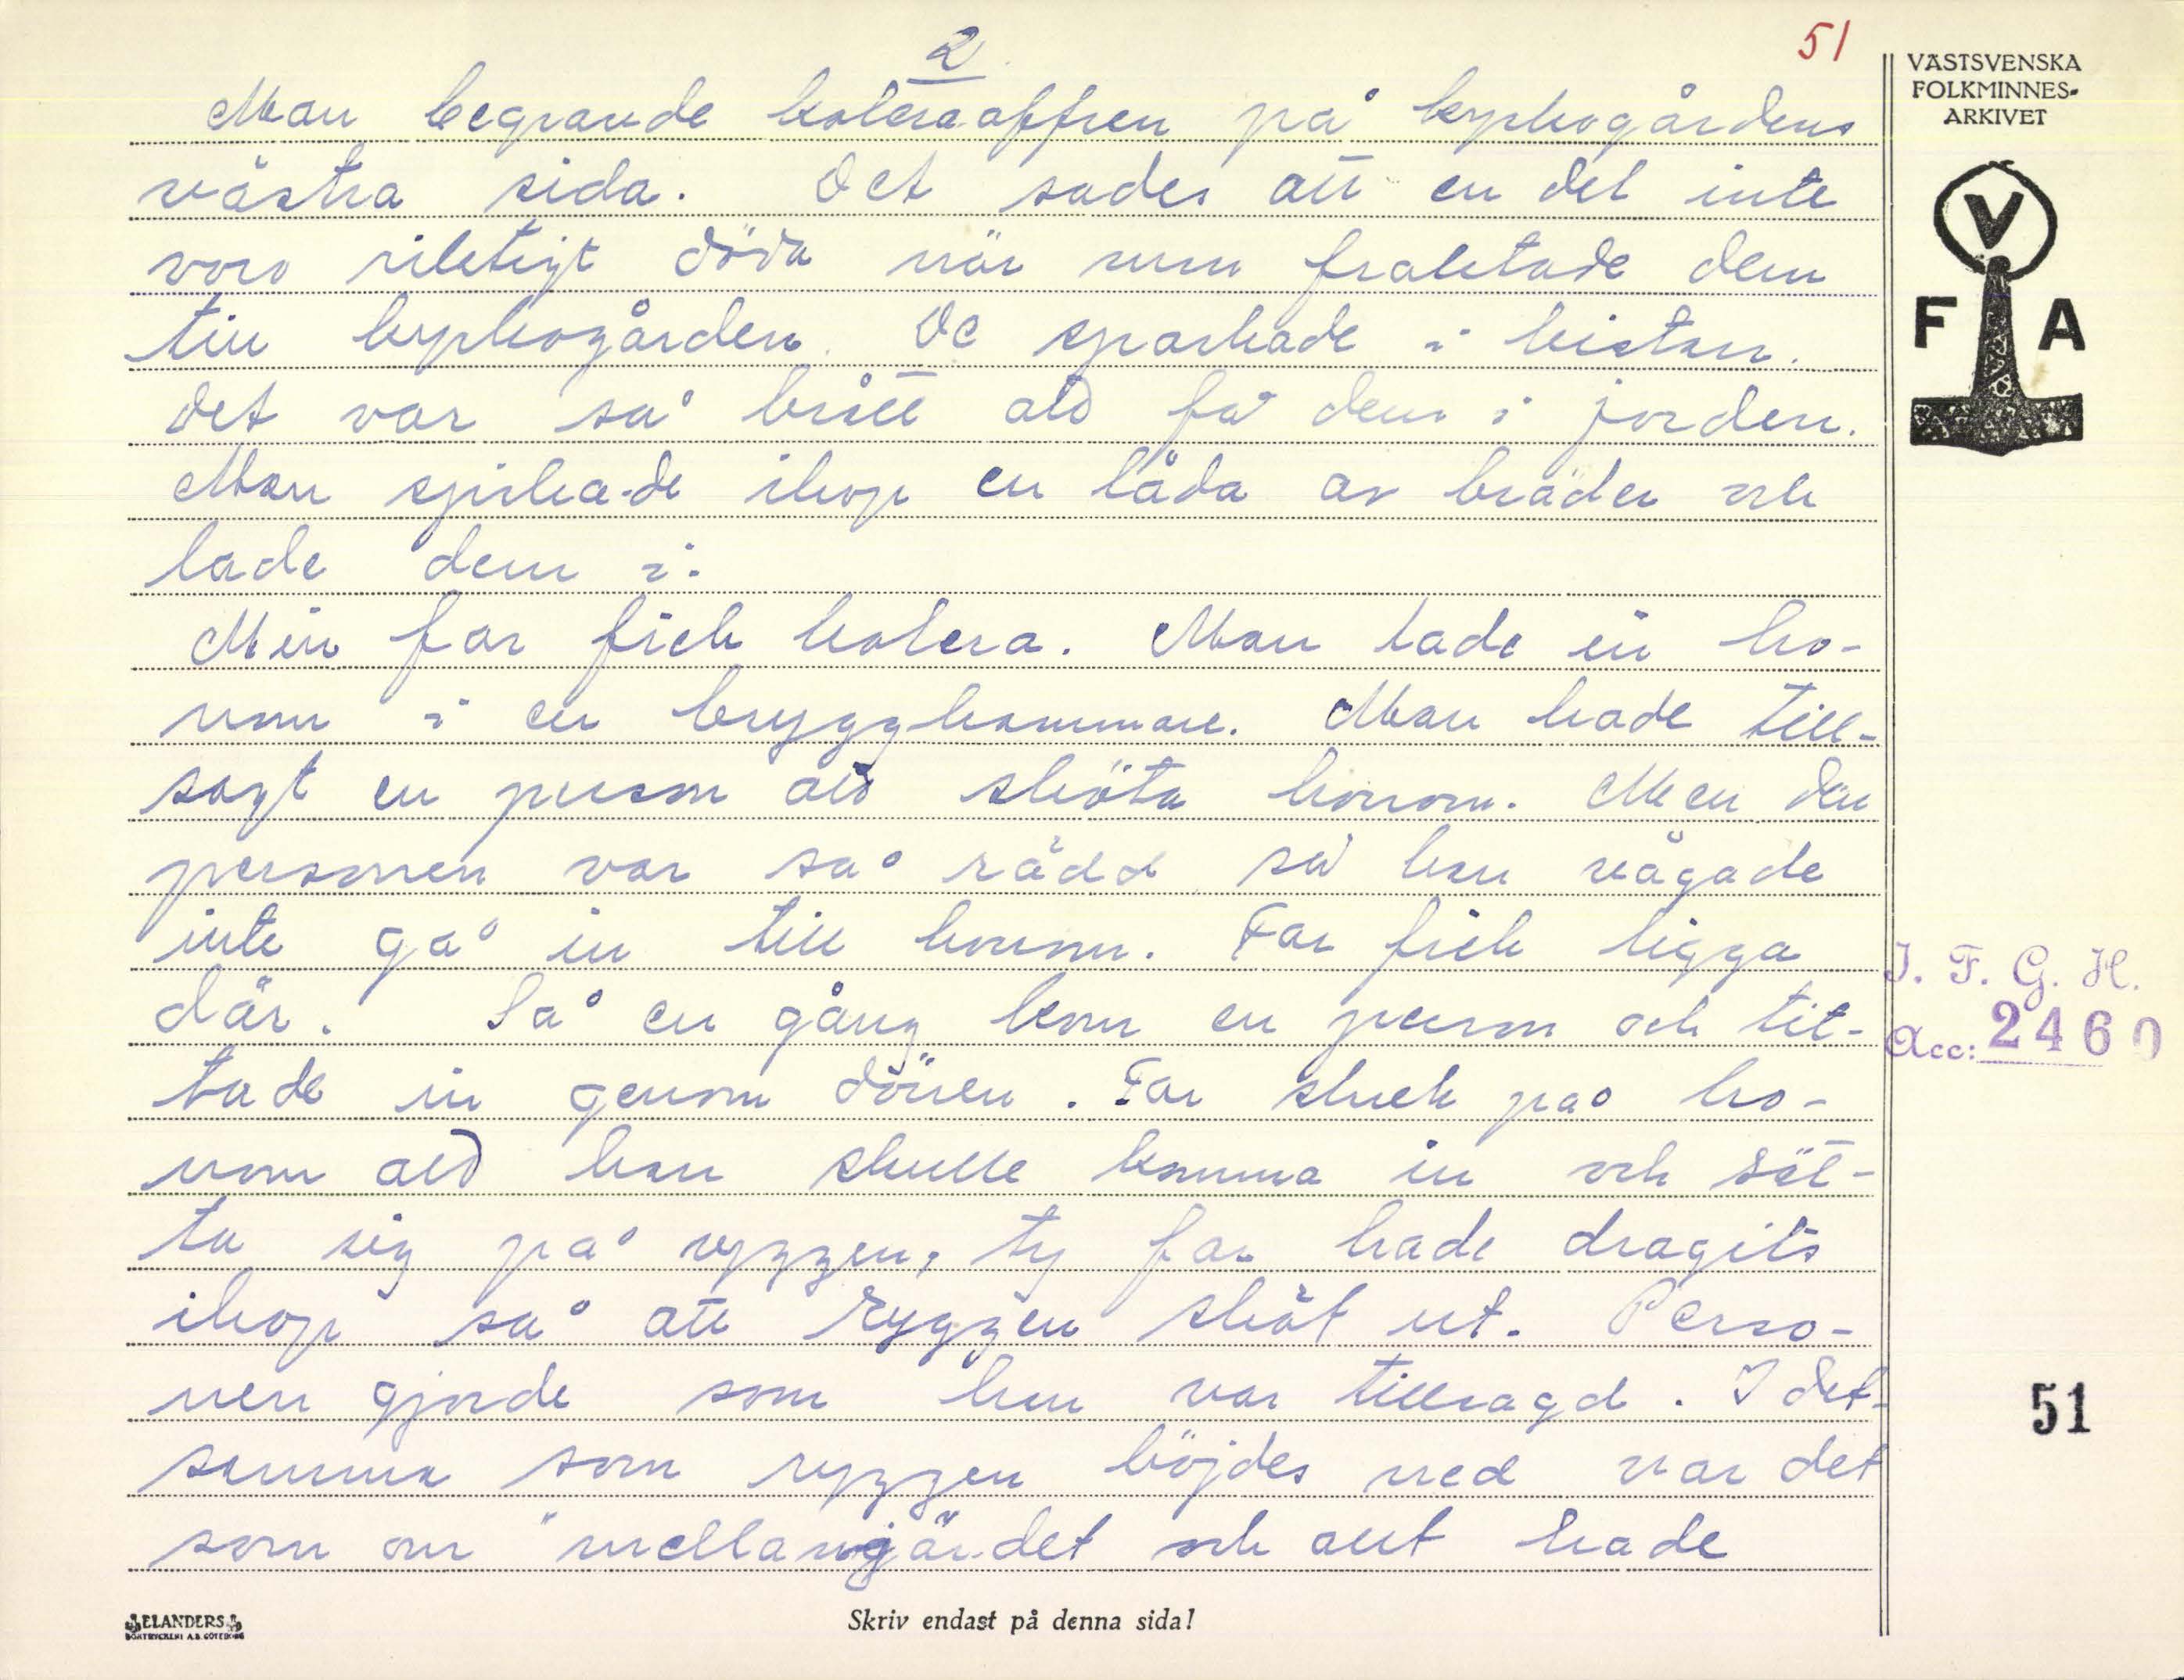 2
51
Man begravde koleraoffren på kyrkogårdens
västra sida. Det sades att en del inte
voro riktigt döda när mm fraktade dem
till kyrkogården. De sparkade i kistan.
Det var så brått att få dem i jorden.
Man spikade ihop en låda av bräder och
lade dem i.
Min far fick kolera. Man lade in ho-
nom i en bryggkammare. Man hade till-
sagt en person att sköta honom. Men den
personen var så rädd så han vågade
inte gå in till honom. Far fick ligga
där. Så en gång kom en person och tit-
tade in genom dörren. Far skrek på ho-
nom att han skulle komma in och sät-
ta sig på ryggen, ty far hade dragits
ihop så att ryggen sköt ut. Perso-
nen gjorde som han var tillsagd. I det-
samma som ryggen böjdes ned var det
som om "mellangärdet och allt hade
VÄSTSVENSKA
FOLKMINNES-
ARKIVET
V
F A
I. F. G. H.
Acc: 2460
51
ELANDERS
BOKTRYCKERI A.B. GÖTEBORG
Skriv endast på denna sida!